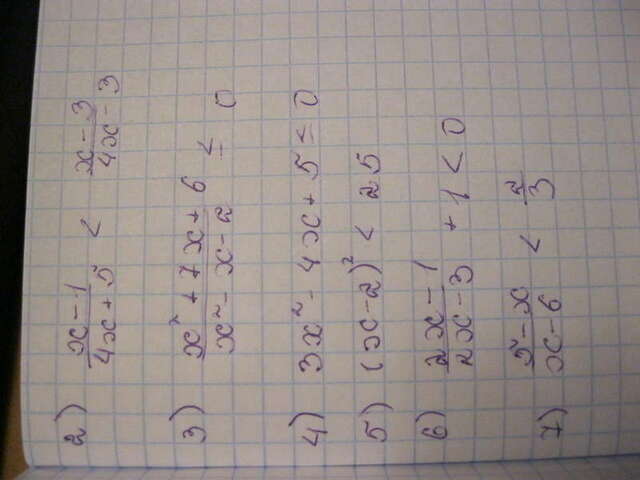 2) (x-1)/(4x+5) < (x-3)/(4x-3)
3) (x²+7x+6)/(x²-x-2) ≤ 0
4) 3x²-4x+5≤0
5) (x-2)² < 25
6) (2x-1)/(2x-3) +1<0
7) (5-x)/(x-6) < 2/3